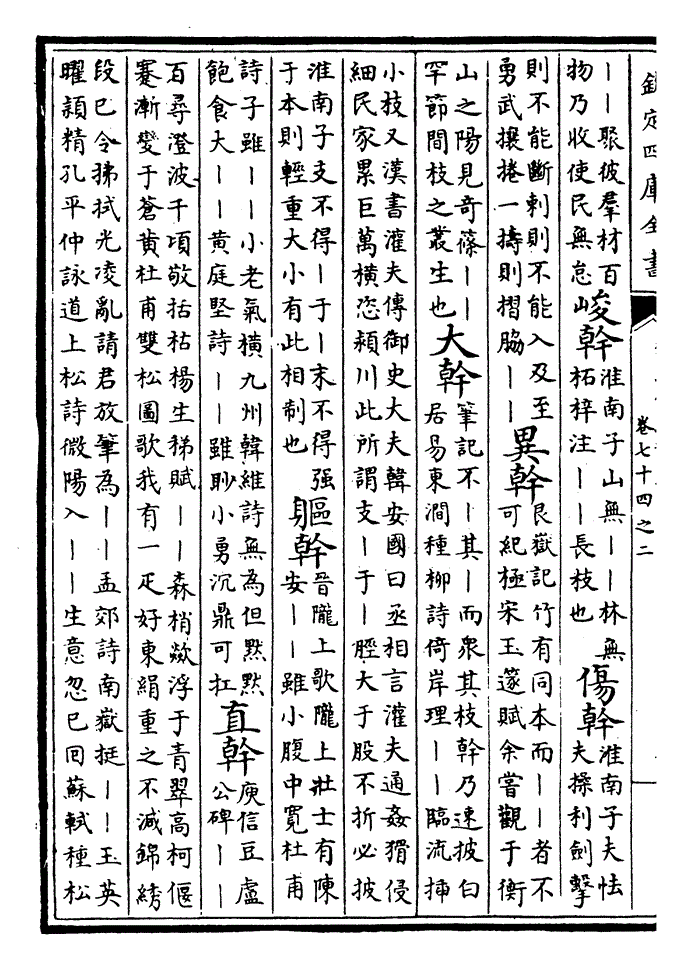 欽定四庫全書
卷七十四之二
丨丨聚彼羣材百
物乃收使民無怠
峻幹
淮南子山無丨丨林無
柘梓注丨丨長枝也
傷幹
淮南子夫怯
夫操利劍擊
則不能斷刺則不能入及至
勇武攘捲一擣則摺脇丨丨
異幹
艮嶽記竹有同本而丨丨者不
可紀極宋玉篴賦余嘗觀于衡
山之陽見奇篠丨丨
罕節間枝之叢生也
大幹
筆記不丨其丨而衆其枝幹乃速披白
居易東澗種柳詩倚岸理丨丨臨流揷
小枝又漢書灌夫傳御史大夫韓安國曰丞相言灌夫通姦猾侵
細民家累巨萬橫恣潁川此所謂支丨于丨脛大于股不折必披
淮南子支不得丨于丨末不得强
于本則輕重大小有此相制也
軀幹
晉隴上歌隴上壯士有陳
安丨丨雖小腹中寛杜甫
詩子雖丨丨小老氣橫九州韓維詩無為但黙黙
飽食大丨丨黄庭堅詩丨丨雖眇小勇沉鼎可扛
直幹
庾信豆盧
公碑丨丨
百尋澄波千頃敬括枯楊生稊賦丨丨森梢歘浮于青翠高柯偃
蹇漸變于蒼黄杜甫雙松圖歌我有一疋好東絹重之不減錦綉
段已令拂拭光凌亂請君放筆為丨丨孟郊詩南嶽挺丨丨玉英
曜潁精孔平仲詠道上松詩微陽入丨丨生意忽已囘蘇軾種松